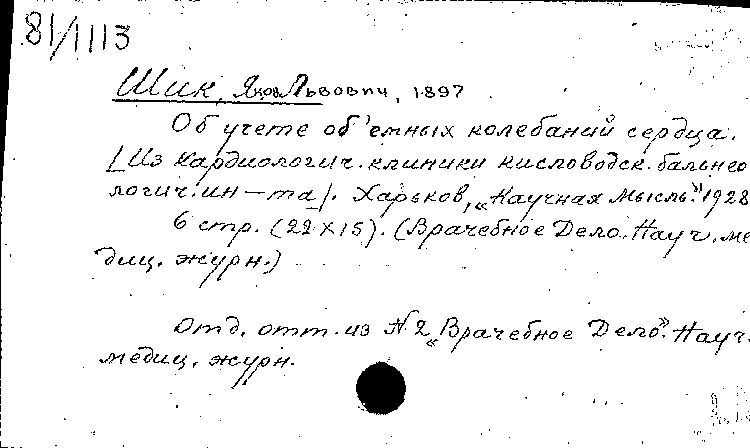 81/1113
Шик, Яков Львович, 1897
Об учете об'емных колебаний сердца.
[Из кардиологич. клиники кисловодск. бальнео
логич. ин-та]. Харьков, „Научная мысль". 1928
6 стр. (22×15). (Врачебное Дело. Науч. ме
диц. журн.)
Отд. отт. из №2 „Врачебное Дело". Науч.
медиц. журн.